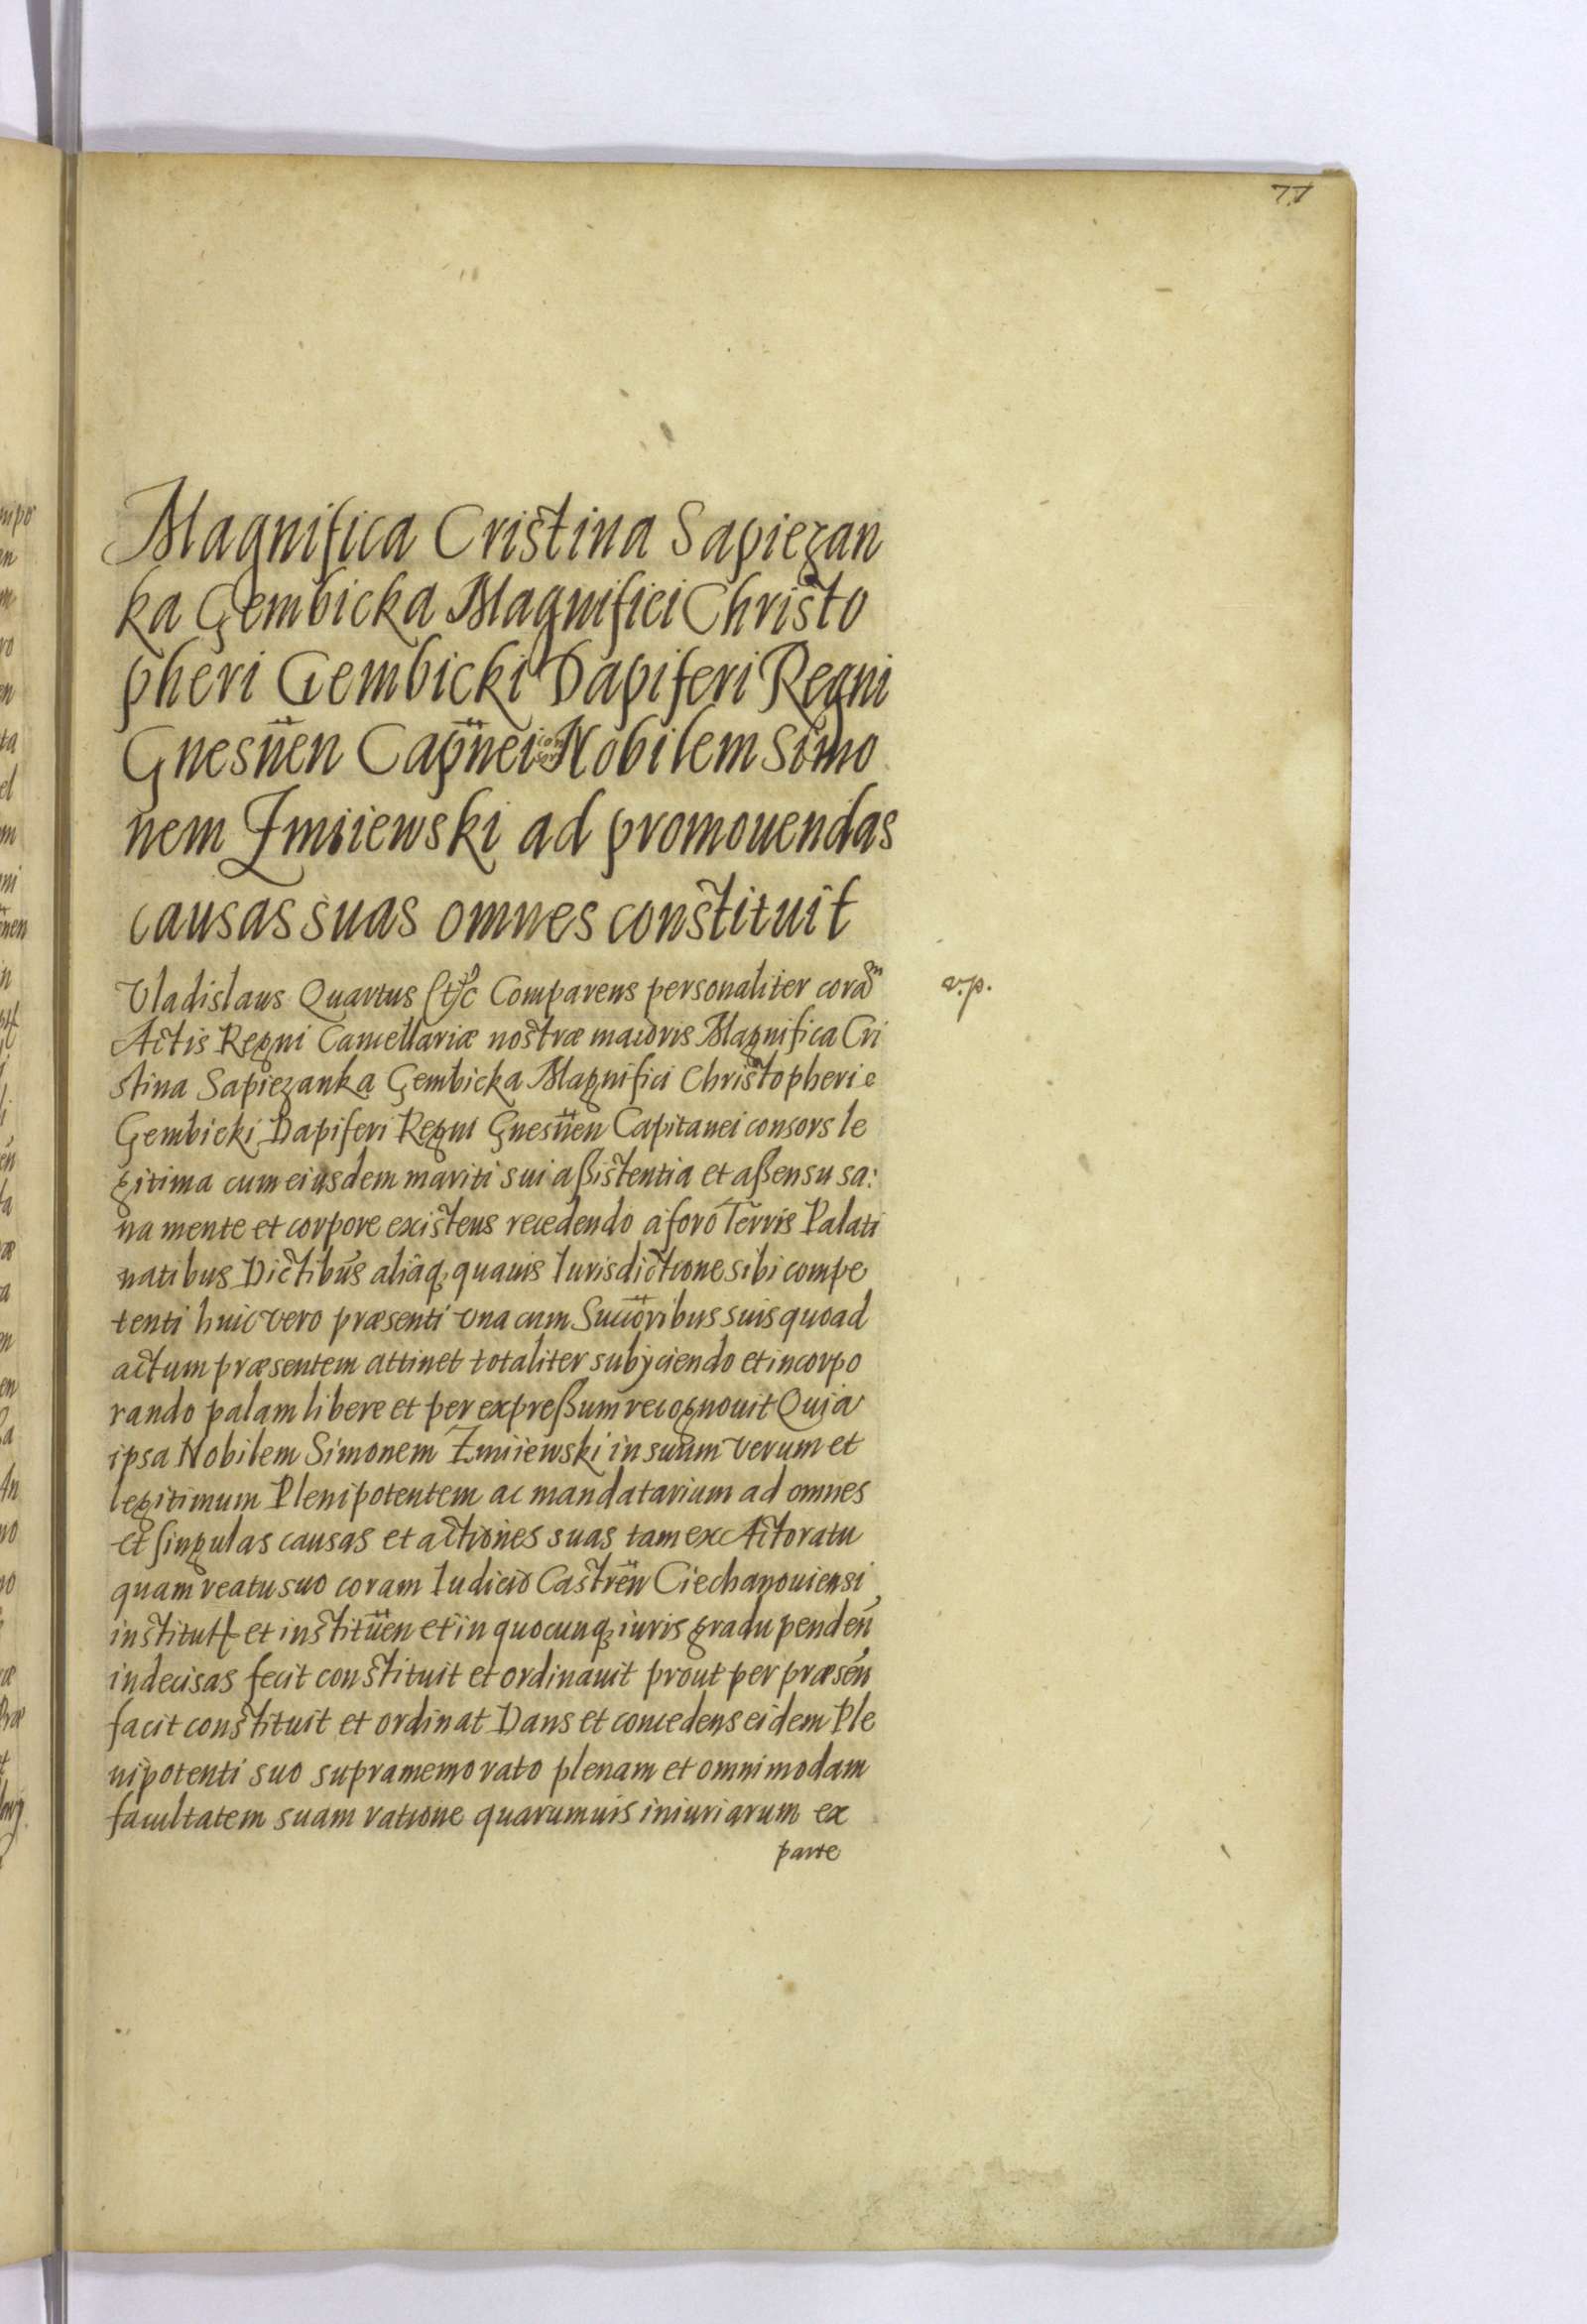 77
Magnifica Cristina Sapiezan
ka Gembicka Magnifici Christo
pheri Gembicki Dapiferi Regni
Gnesn̄en Cap̄nei Nobilem Simo
nem Zmiiewski ad promouendas
causas suas omnes constituit
Vladislaus Quartus etc Comparens personaliter coram
v.p.
Actis Regni Cancellariæ nostræ maioris Magnifica Cri
stina Sapiezanka Gembicka Magnifici Christopheri
Gembicki Dapiferi Regni Gnesn̄en Capitanei consors le
gitima cum eiusdem mariti sui aßistentia et aßensu sa:
na mente et corpore existens recedendo a foro Terris Palati
natibus Dictibus aliaq. quauis Iurisdictione sibi compe
tenti huic vero præsenti vna cum Succoribus suis quoad
actum præsentem attinet totaliter subijciendo et incorpo
rando palam libere et per expreßum recognouit Quia
ipsa Nobilem Simonem Zmiiewski in suum verum et
legitimum Plenipotentem ac mandatarium ad omnes
et singulas causas et actiones suas tam ex Actoratu
quam reatu suo coram Iudicio Castren̄ Ciechanouiensi
institut et institūen et in quocunq. iuris gradu penden̄
indecisas fecit constituit et ordinauit prout per præsen̄
facit constituit et ordinat Dans et concedens eidem Ple
nipotenti suo supramemorato plenam et omnimodam
facultatem suam ratione quarumuis iniuriarum ex
parte